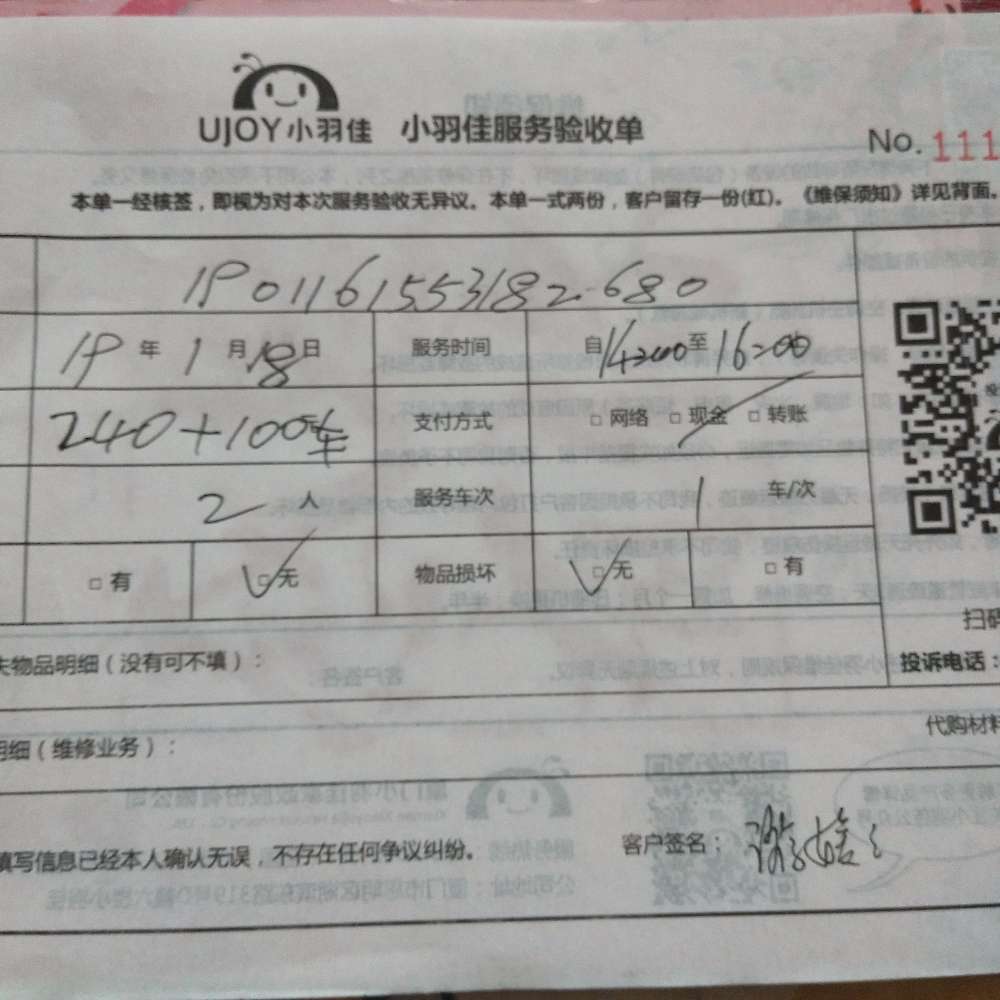 UJOY小羽佳 小羽佳服务验收单
No. 111
本单一经核签，即视为对本次服务验收无异议。本单一式两份，客户留存一份(红)。《维保须知》详见背面。
1901161553182680
19年1月18日 服务时间 自14:00至16:00
240+100车 支付方式 □网络 □现金 □转账
2人 服务车次 1车/次
□有 □无 物品损坏 □无 □有
扫码
失物品明细（没有可不填）： 投诉电话：
明细（维修业务）： 代购材料
填写信息已经本人确认无误，不存在任何争议纠纷。 客户签名：